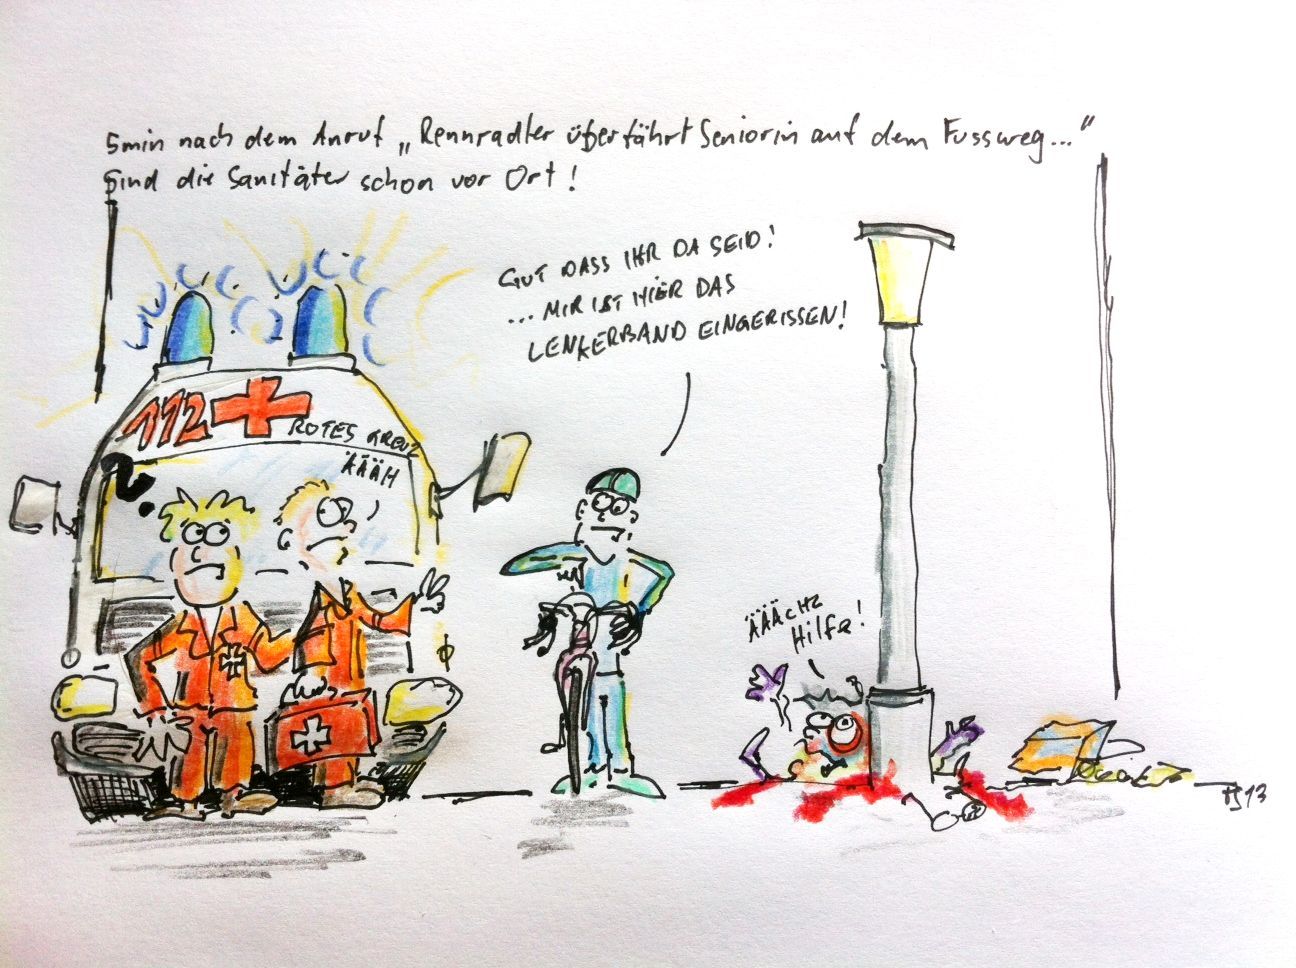 5min nach dem Anruf „Rennradler überfährt Seniorin auf dem Fussweg..."
Sind die Sanitäter schon vor Ort!
GUT DASS IHR DA SEID!
... MIR IST HIER DAS
LENKERBAND EINGERISSEN!
112
ROTES KREUZ
ÄÄÄH
?
ÄÄÄCHZ
Hilfe!
13